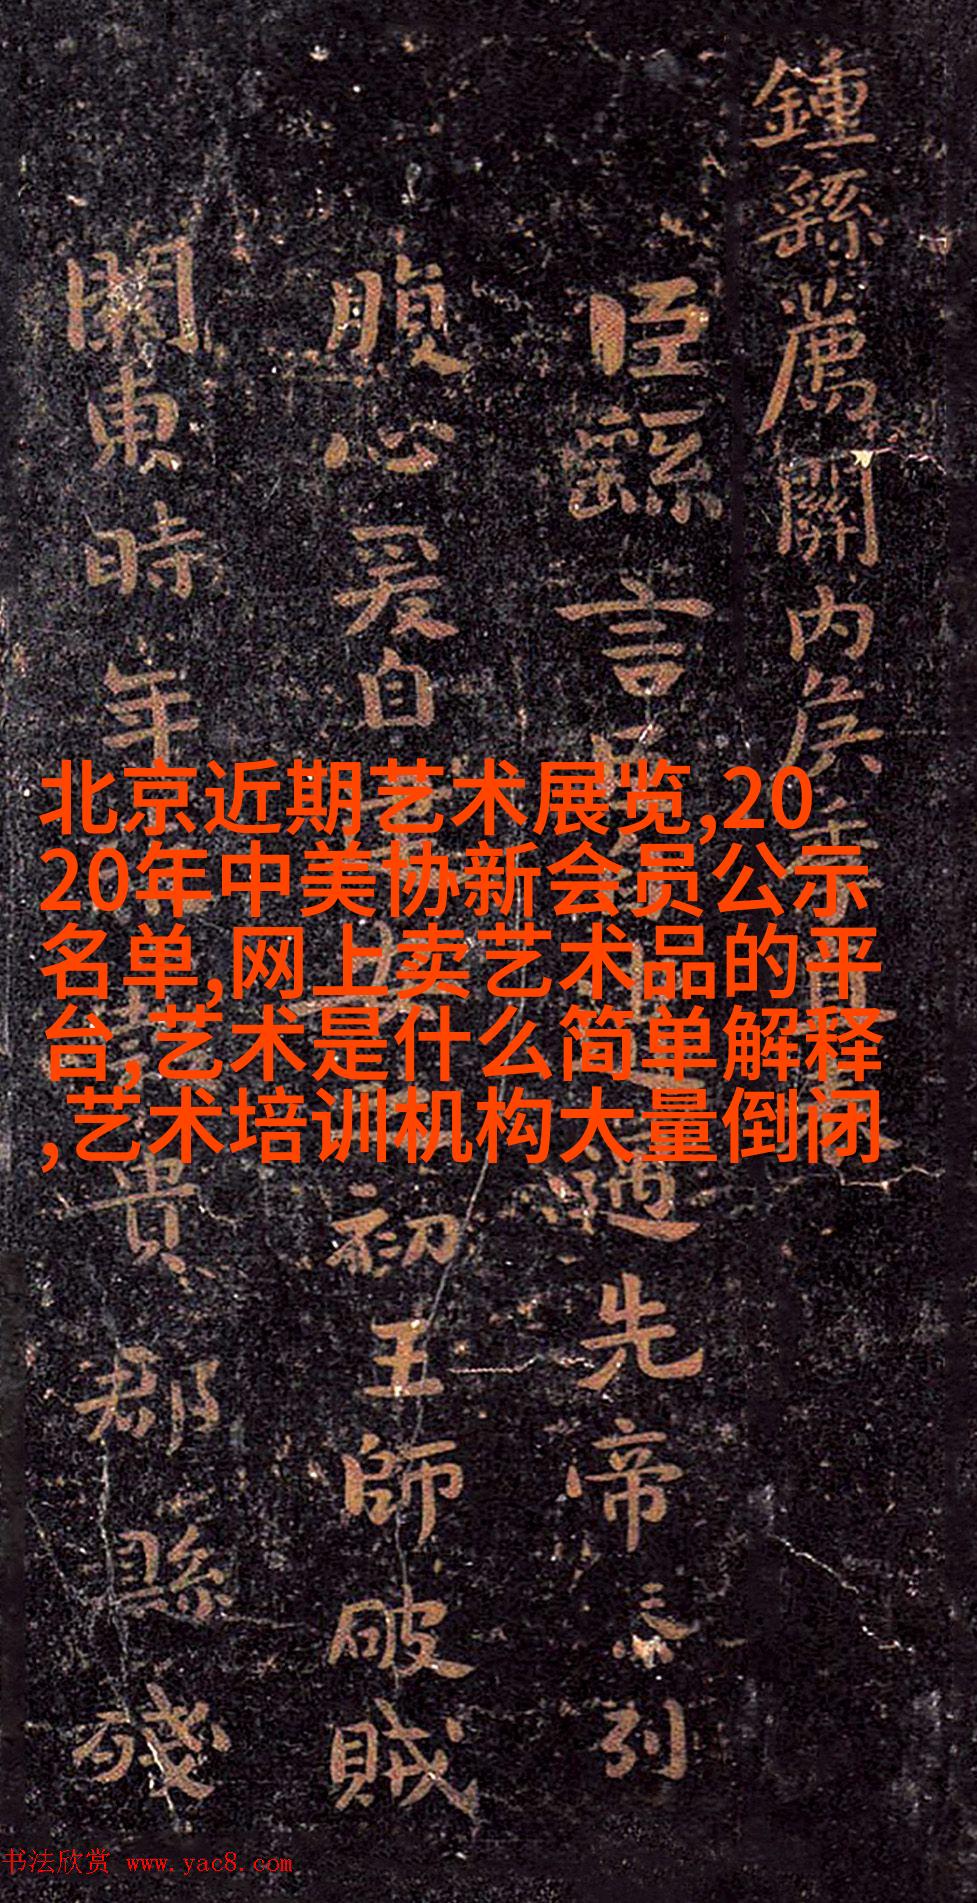 鍾繇薦關內侯季直表
臣繇言臣
遇先帝忝列
腹心爰自
初王師破賊
關東時年
貴郡縣殘
北京近期艺术展览,20
20年中美协新会员公示
名单,网上卖艺术品的平
台,艺术是什么简单解释
,艺术培训机构大量倒闭
书法欣赏 www.yac8.com